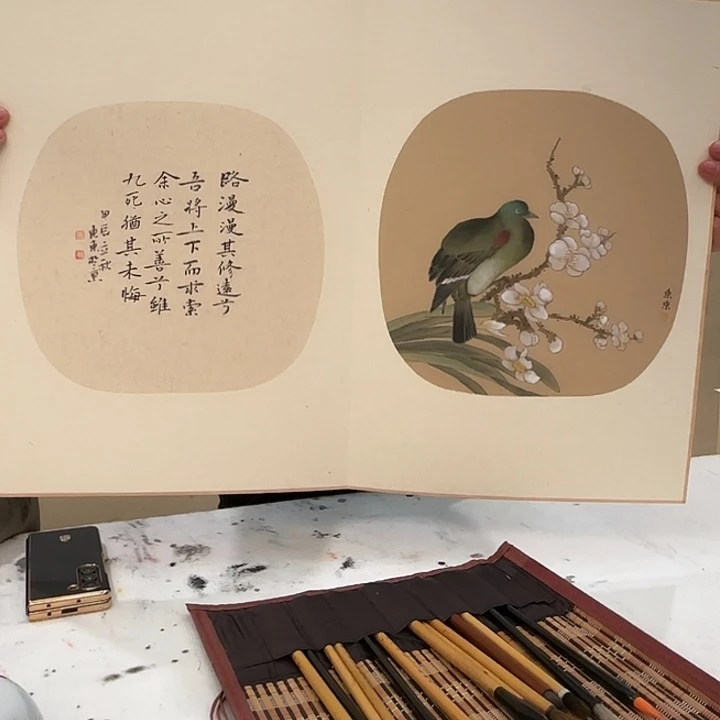 路漫漫其修遠兮
吾將上下而求索
余心之所善兮雖
九死猶其未悔
甲辰立秋